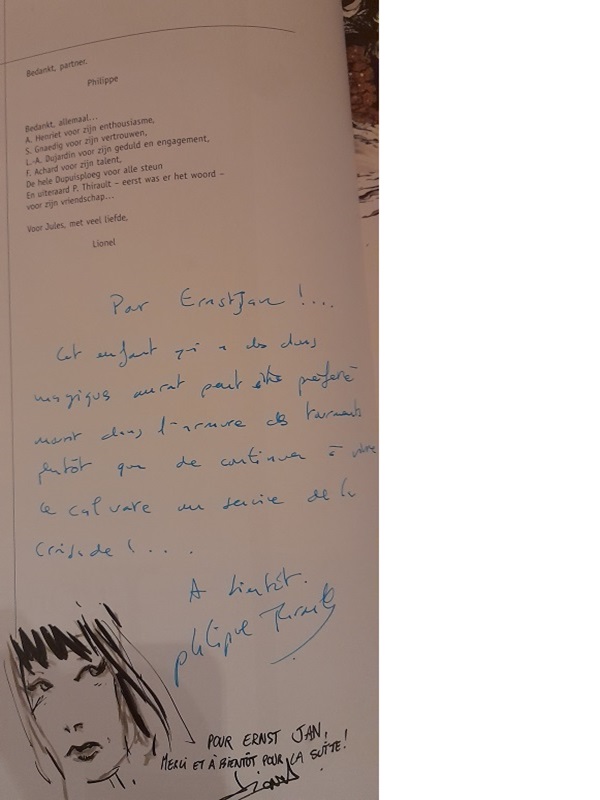 Bedankt, partner.
Philippe
Bedankt, allemaal...
A. Henriet voor zijn enthousiasme,
S. Gnaedig voor zijn vertrouwen,
L.-A. Dujardin voor zijn geduld en engagement,
F. Achard voor zijn talent,
De hele Dupuisploeg voor alle steun
En uiteraard P. Thirault – eerst was er het woord –
voor zijn vriendschap...
Voor Jules, met veel liefde,
Lionel
Pour ErnstJan !...
Cet enfant qui a des dons
magiques aurait peut être préféré
mourir dans l'armure des tourments
plutôt que de continuer à vivre
ce calvaire au service de la
Croisade !...
A bientôt.
Philippe Thirault
POUR ERNST JAN,
MERCI ET À BIENTÔT POUR LA SUITE!
Lionel